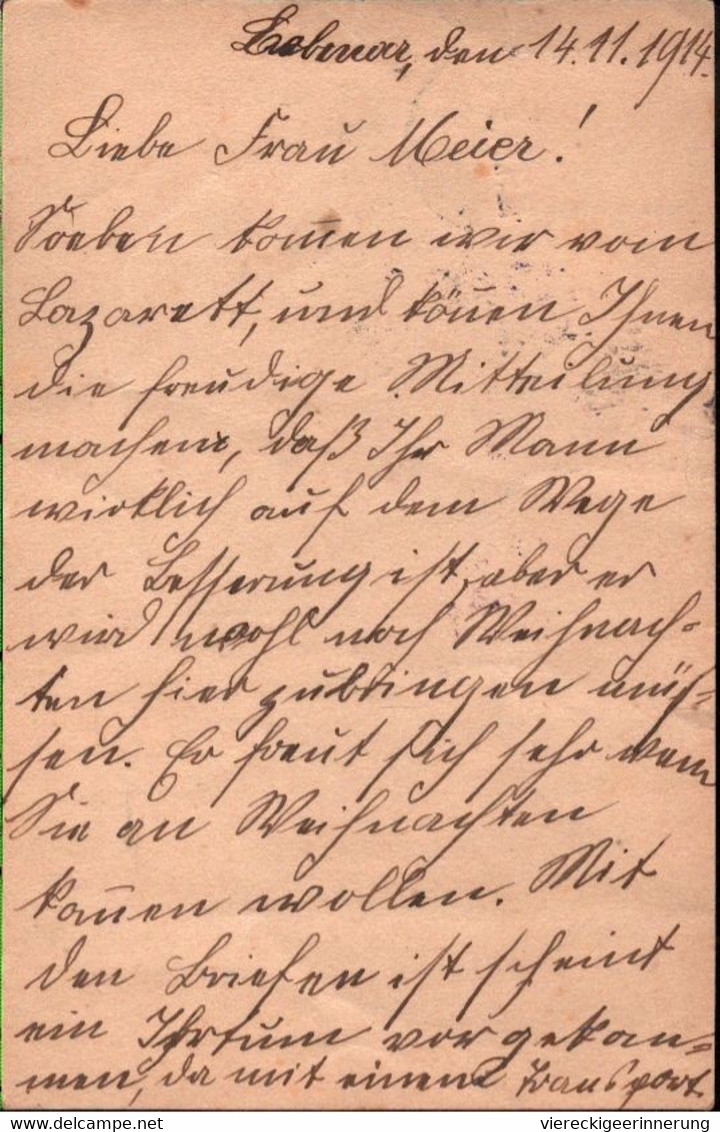 den 14.11.1914.
Liebe Frau Meier!
Soeben kom̄en wir vom
Lazarett, und kön̄en Ihnen
die freudige Mitteilung
machen, daß Ihr Mann
wirklich auf dem Wege
der Besserung ist, aber er
wird wohl noch Weihnach-
ten hier zubringen müs-
sen. Er freut sich sehr wenn
Sie an Weihnachten
kom̄en wollen. Mit
den Briefen ist scheint
ein Ihrtum vorgekom-
men, da mit einem Transport
viereckigeerinnerung